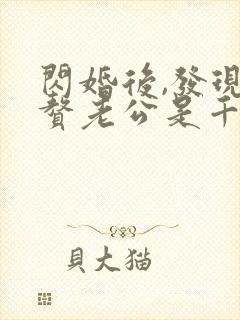 閃婚後,發現
贅老公是千
貝大猫